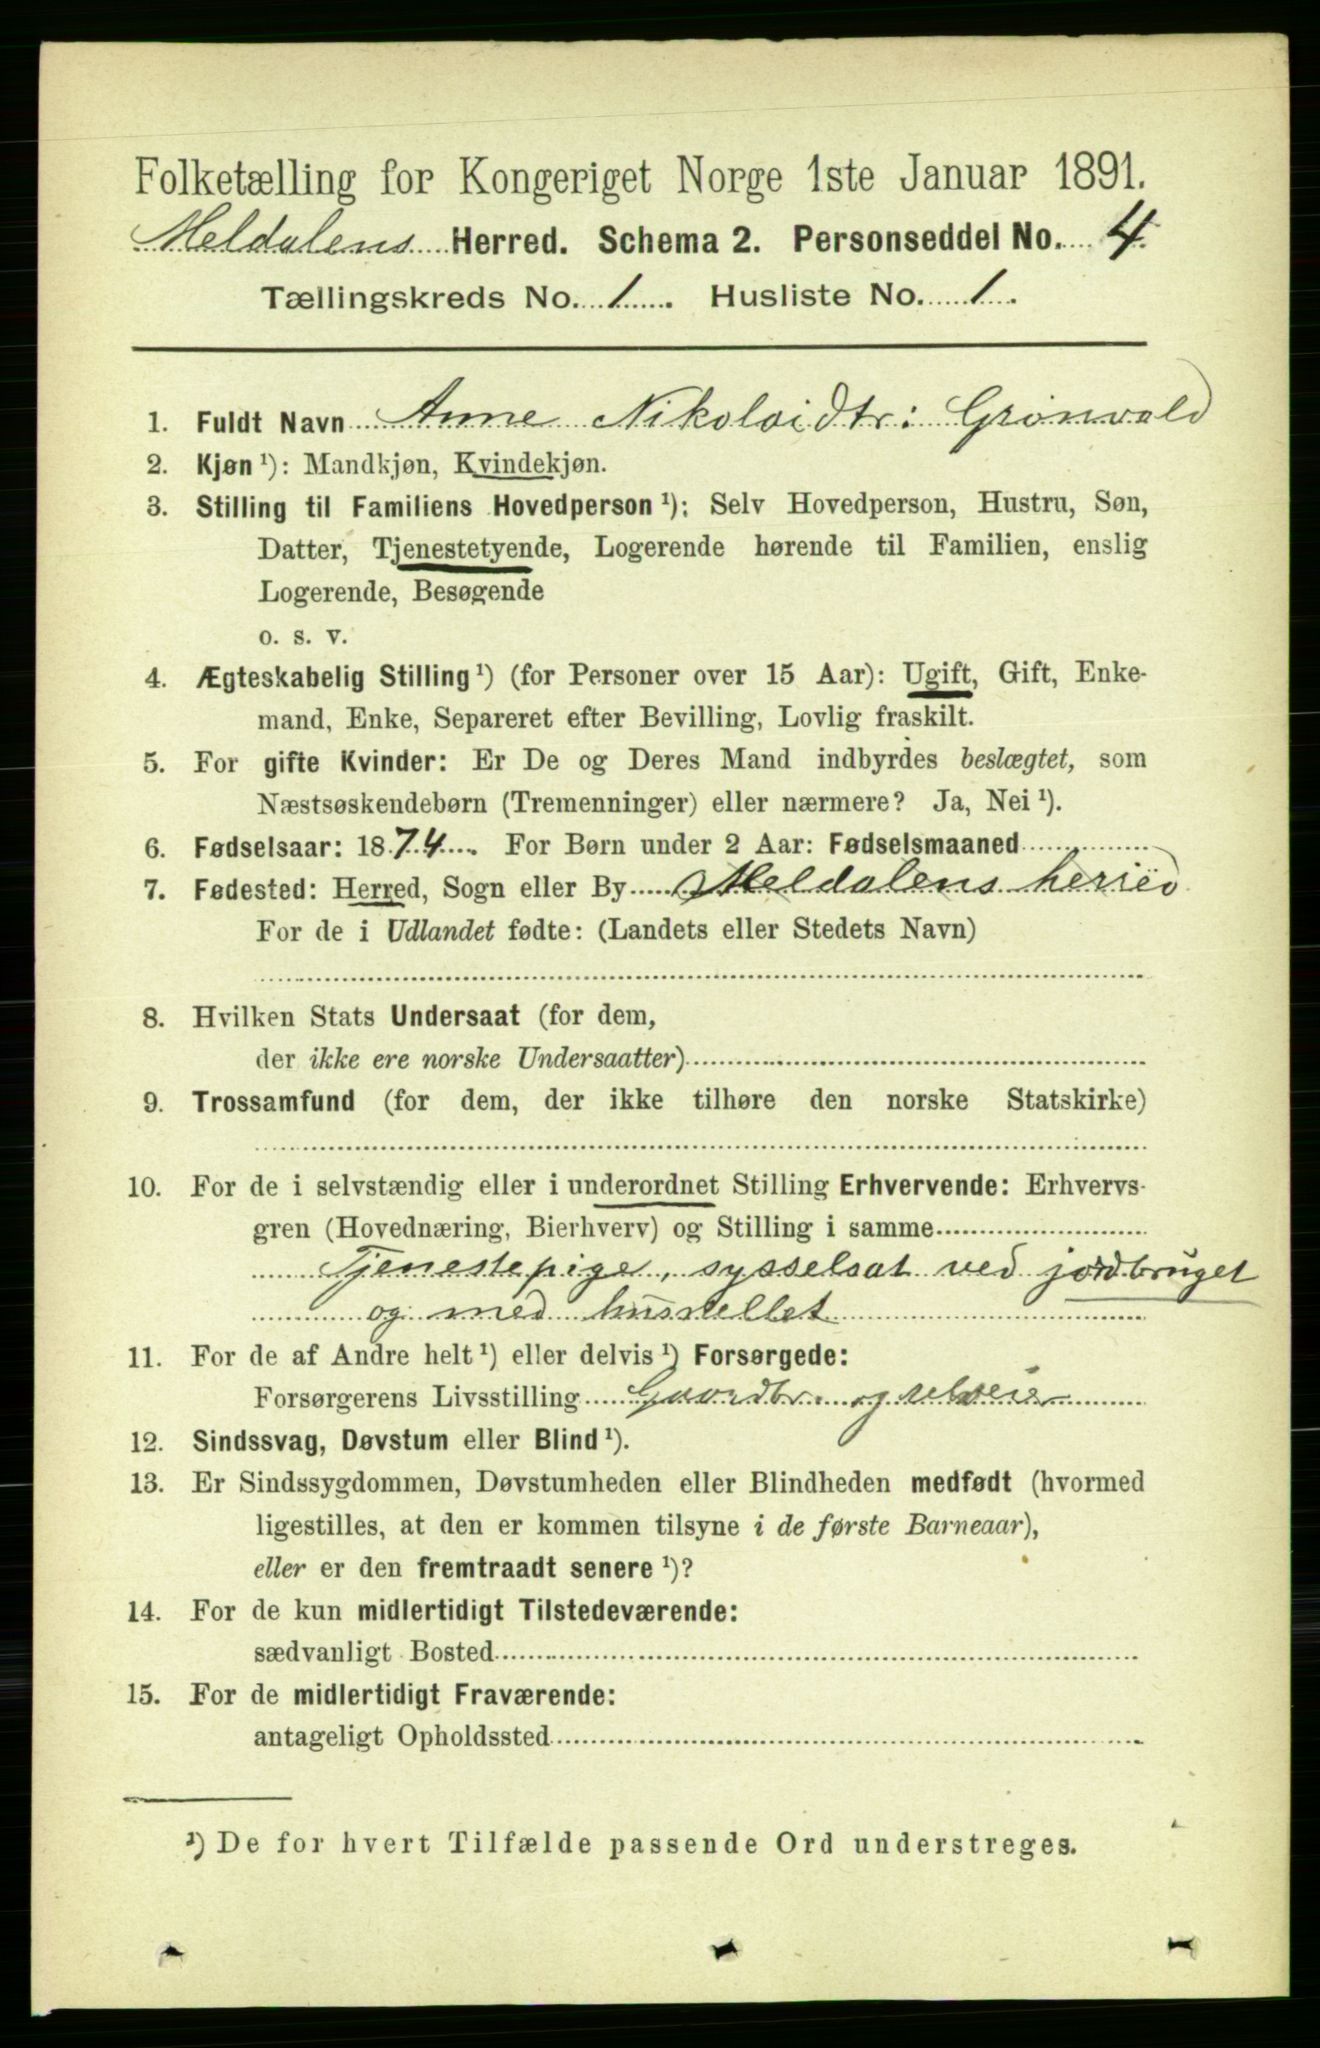 Folketælling for Kongeriget Norge 1ste Januar 1891.
Meldalens Herred. Schema 2. Personseddel No. 4.
Tællingskreds No. 1. Husliste No. 1.
1. Fuldt Navn Anne Nikolaidtr: Grönvold
2. Kjøn¹): Mandkjøn, Kvindekjøn.
3. Stilling til Familiens Hovedperson¹): Selv Hovedperson, Hustru, Søn,
Datter, Tjenestetyende, Logerende hørende til Familien, enslig
Logerende, Besøgende
o. s. v.
4. Ægteskabelig Stilling¹) (for Personer over 15 Aar): Ugift, Gift, Enke-
mand, Enke, Separeret efter Bevilling, Lovlig fraskilt.
5. For gifte Kvinder: Er De og Deres Mand indbyrdes beslægtet, som
Næstsøskendebørn (Tremenninger) eller nærmere? Ja, Nei¹).
6. Fødselsaar: 1874. For Børn under 2 Aar: Fødselsmaaned
7. Fødested: Herred, Sogn eller By Meldalens herred
For de i Udlandet fødte: (Landets eller Stedets Navn)
8. Hvilken Stats Undersaat (for dem,
der ikke ere norske Undersaatter)
9. Trossamfund (for dem, der ikke tilhøre den norske Statskirke)
10. For de i selvstændig eller i underordnet Stilling Erhvervende: Erhvervs-
gren (Hovednæring, Bierhverv) og Stilling i samme
Tjenestepige, sysselsat ved jordbruget
og med husstellet
11. For de af Andre helt¹) eller delvis¹) Forsørgede:
Forsørgerens Livsstilling Gaardbr. og selveier
12. Sindssvag, Døvstum eller Blind¹).
13. Er Sindssygdommen, Døvstumheden eller Blindheden medfødt (hvormed
ligestilles, at den er kommen tilsyne i de første Barneaar),
eller er den fremtraadt senere¹)?
14. For de kun midlertidigt Tilstedeværende:
sædvanligt Bosted
15. For de midlertidigt Fraværende:
antageligt Opholdssted
¹) De for hvert Tilfælde passende Ord understreges.